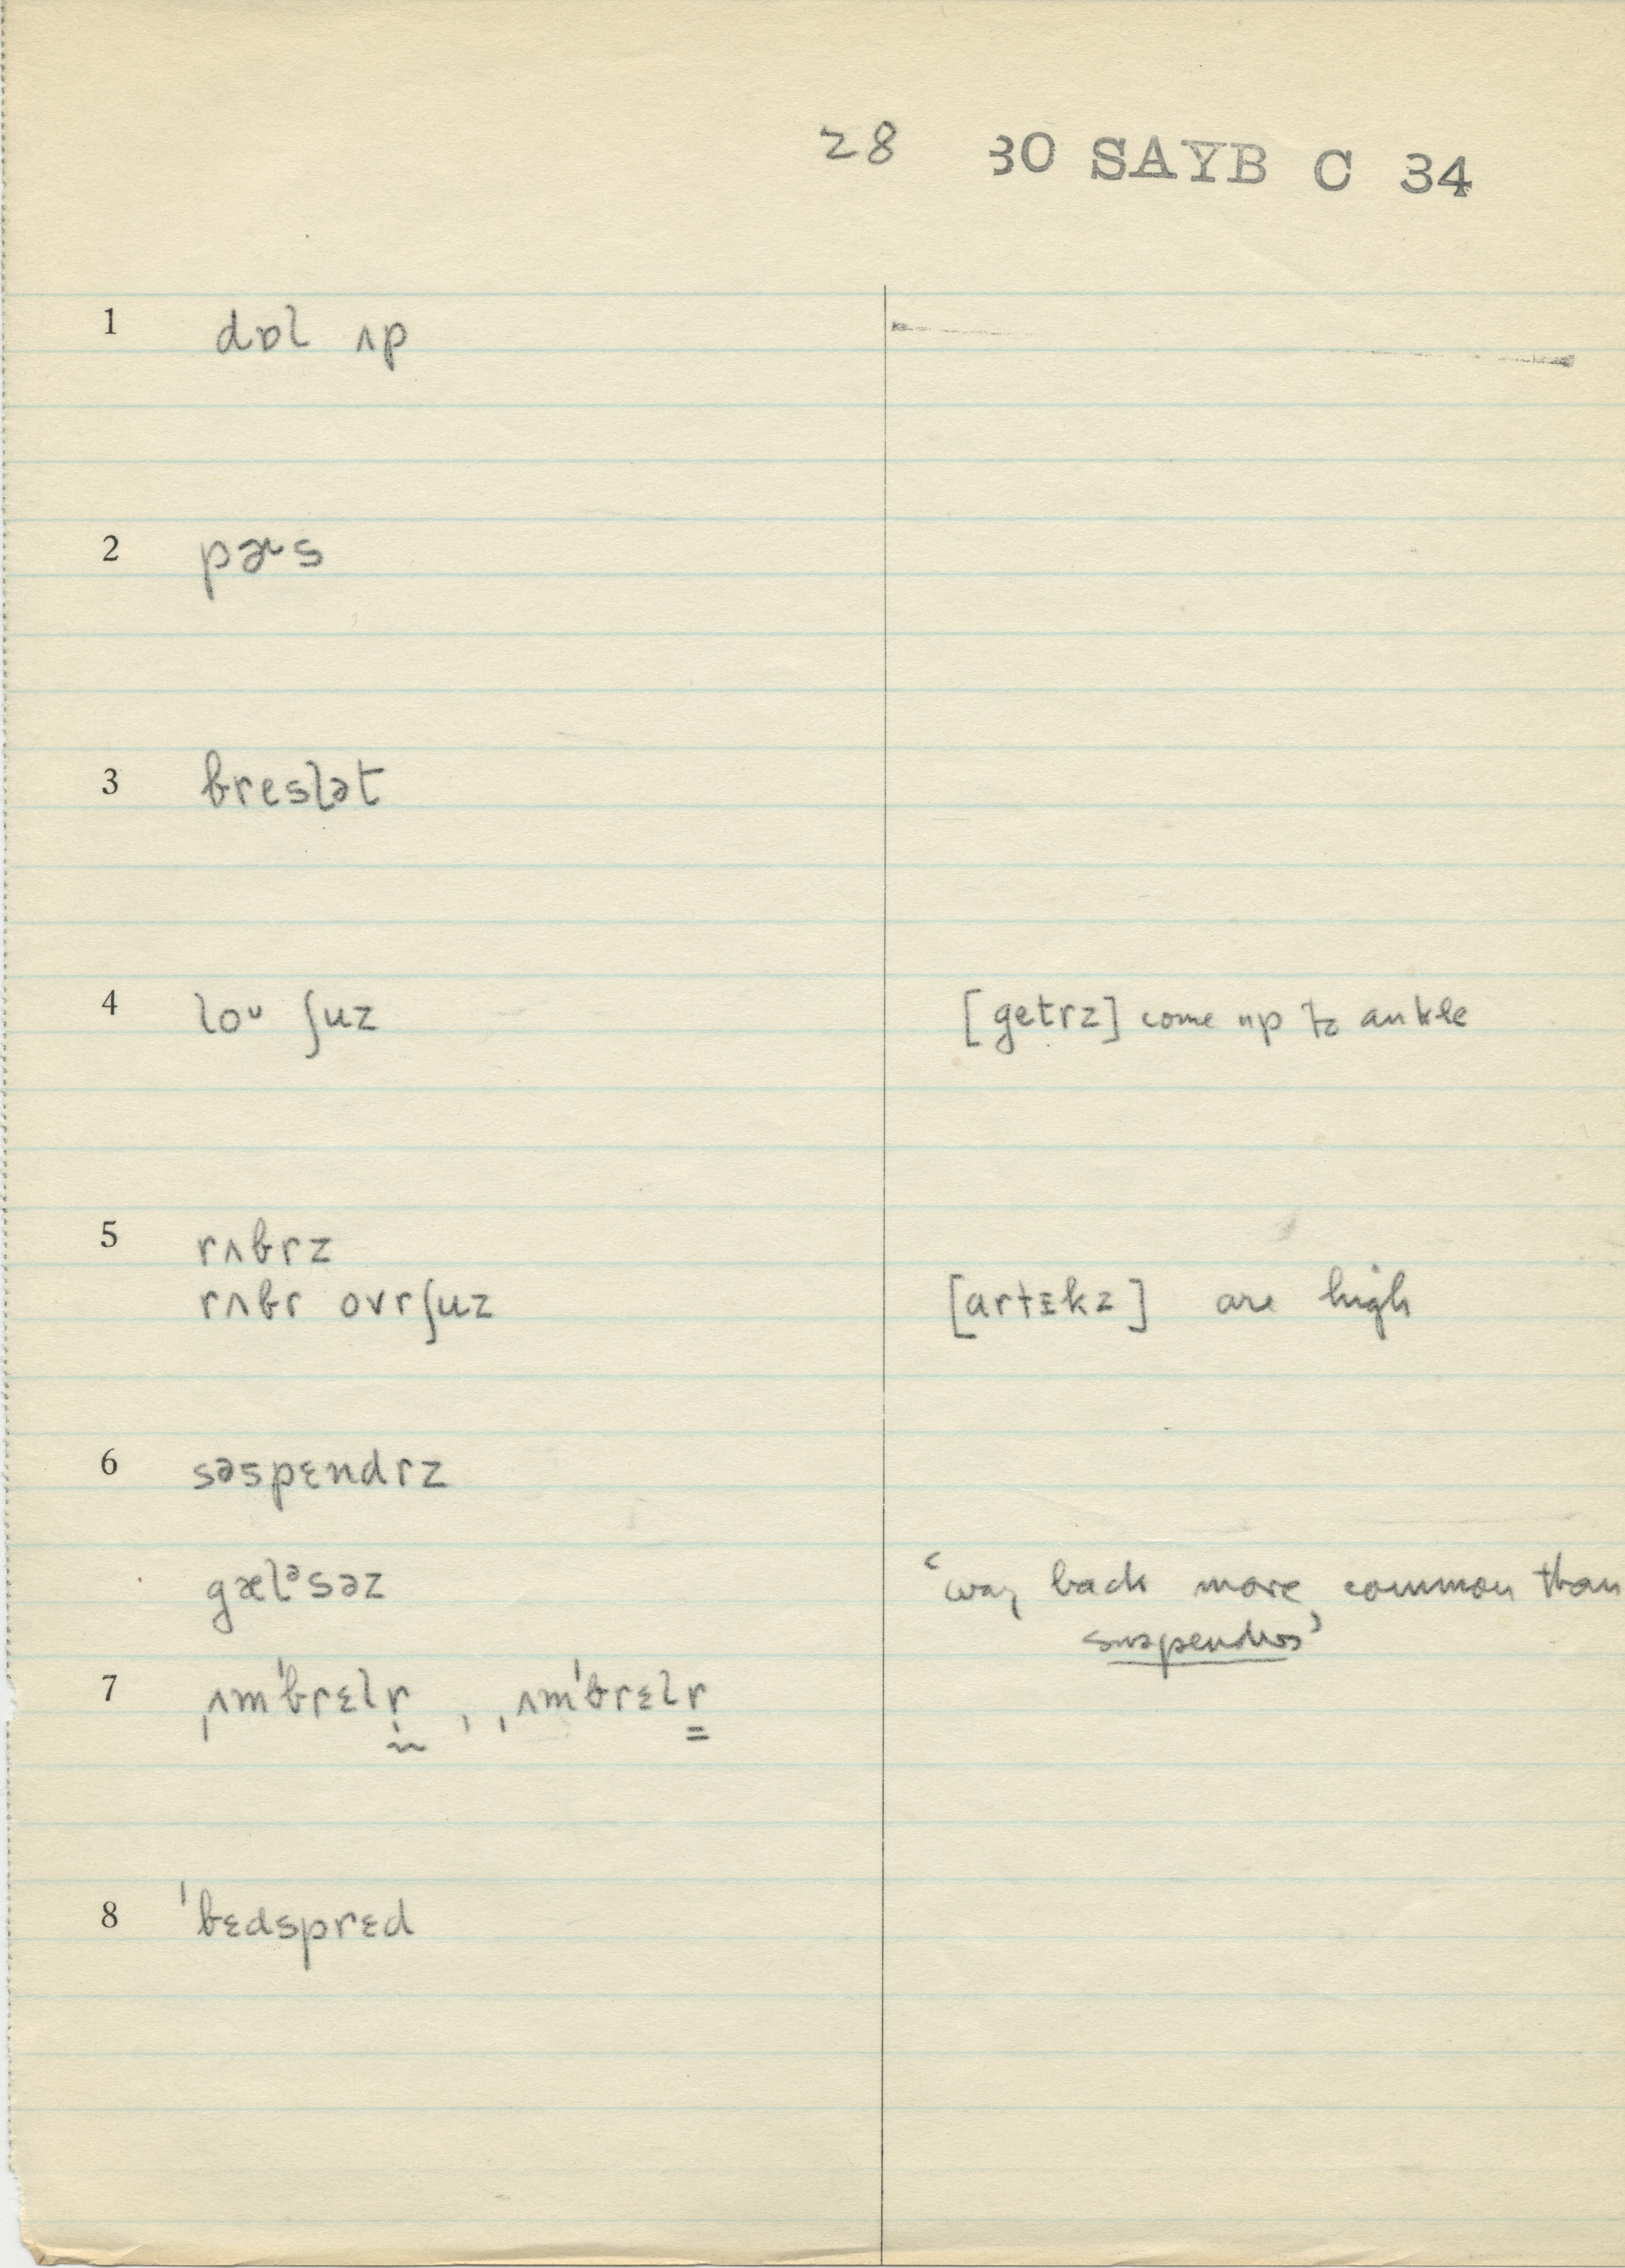 28 30 SAYB C 34
1 dɒl ʌp
2 pɚs
3 breslət
4 loᴜ ʃuz [getrz] come up to ankle
5 rʌbrz
rʌbr ovrʃuz [artɛkz] are high
6 səspɛndrz
gælᵊsəz ‘way back more common than
suspenders’
7 ˌʌmˈbrɛlr̰ , ˌʌmˈbrɛlr̳
8 ˈbɛdsprɛd